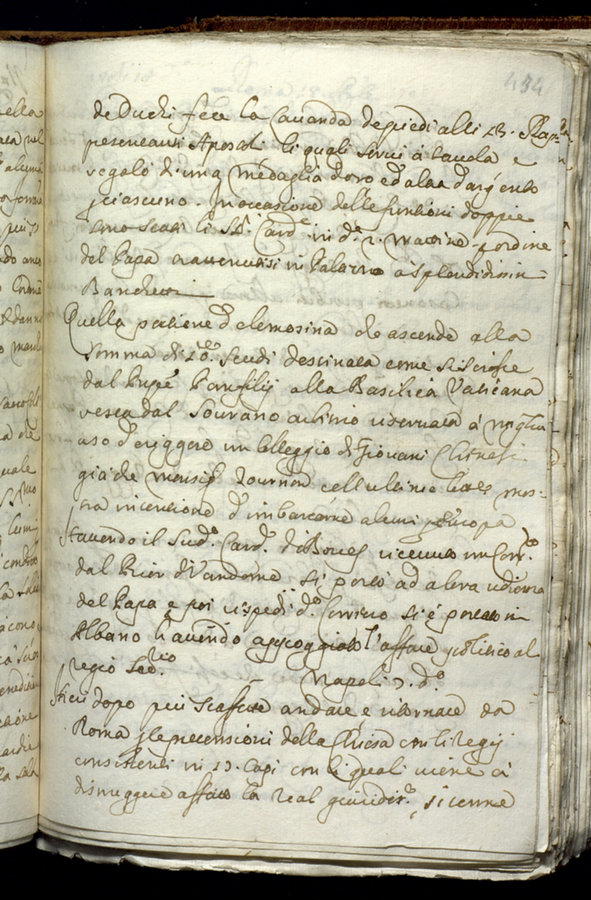 434
de Duchi fece la lavanda de piedi alli 13. Rap
presentanti Apostoli li quali servì à tavola e
regalò di una medaglia d'oro ed altra d'argento
p ciascuno. In occasione delle funtioni doppie
sono stati li SS.ri Card.i in d.e 2. mattine p ordine
del Papa trattenutisi in Palazzo a splendidissimi
Banchetti
Quella portione d'elemosina che ascende alla
somma di scudi destinata come si scrisse
dal Prnpe Panfilij alla Basilica Vaticana
resta dal Sovrano arbitrio riservata à miglior
uso d'eriggere un Colleggio di Giovani Chinesi
già che Monsig. Tournon coll'ultime lettere mos-
tra intentione d'imbarcarne alcuni p Europa
Havendo il Sud.o Card. ricevuto un Corr.o
dal Prior di Vandome si portò ad altra udienza
del Papa e poi rispedì d.o Corriero si è portato in
Albano havendo appoggiato l'affare politico al
regio Seg.rio
Napoli 3. d.o
Hieri dopo più staffette andate e ritornate da
Roma p le pretensioni della Chiesa con li Regij
consistenti in 13. Capi con li quali viene à
distruggere affatto la real giurisdit.e, si tenne